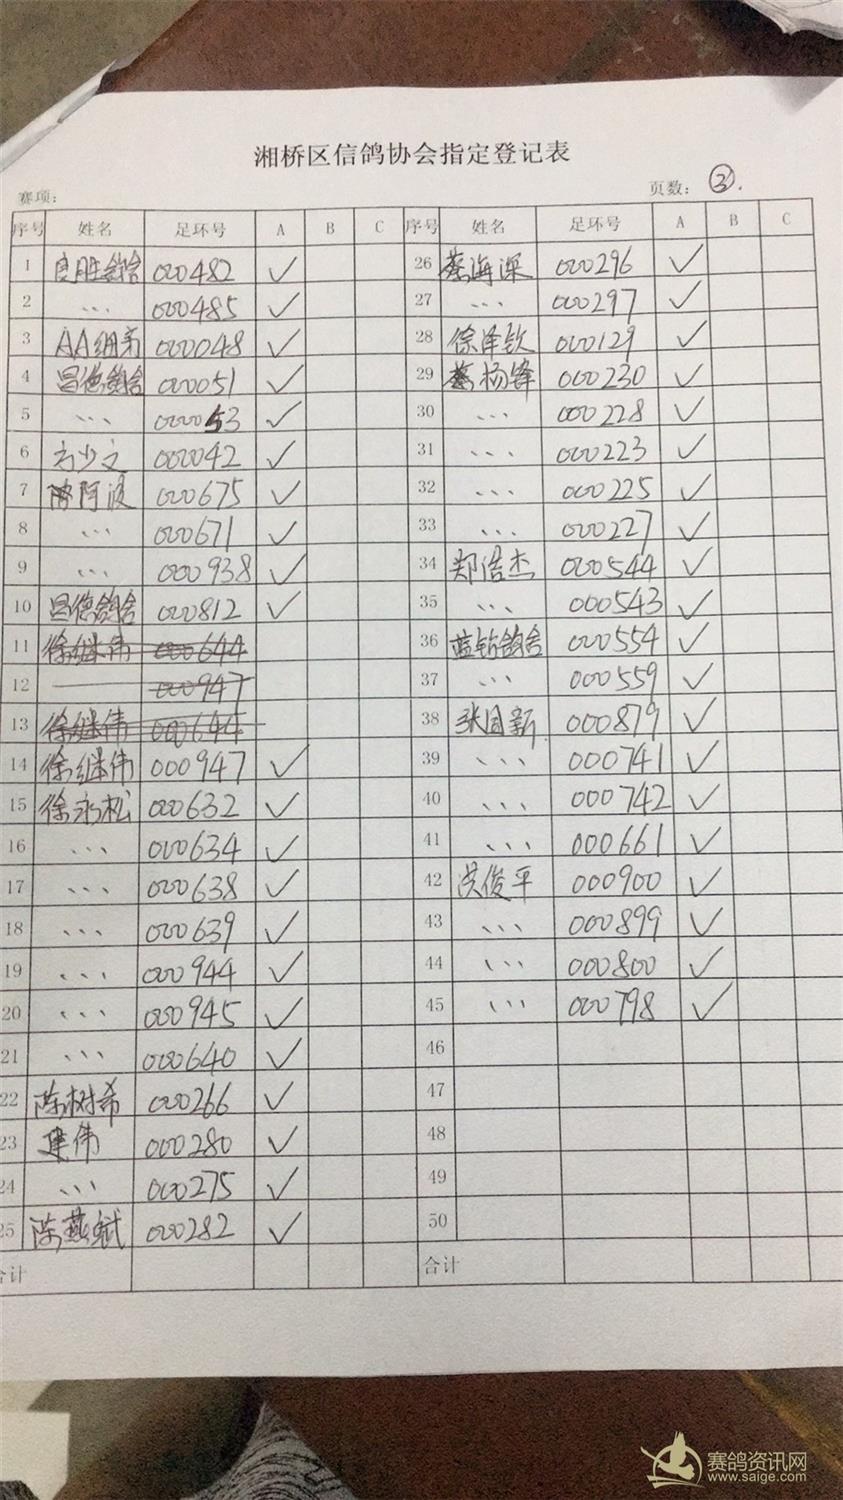 湘桥区信鸽协会指定登记表
赛项: 页数: ③.
序号 姓名 足环号 A B C 序号 姓名 足环号 A B C
1 良胜鸽舍 000482 ✓ 26 蔡海深 000296 ✓
2 、、、 000485 ✓ 27 、、、 000297 ✓
3 AA细弟 000048 ✓ 28 徐泽钦 000129 ✓
4 昌德鸽舍 000051 ✓ 29 蔡杨锋 000230 ✓
5 、、、 000053 ✓ 30 、、、 000228 ✓
6 方少文 000042 ✓ 31 、、、 000223 ✓
7 陈阿波 000675 ✓ 32 、、、 000225 ✓
8 、、、 000671 ✓ 33 、、、 000227 ✓
9 、、、 000938 ✓ 34 郑浩杰 000544 ✓
10 昌德鸽舍 000812 ✓ 35 、、、 000543 ✓
11 徐继伟 000644 36 蓝钻鸽舍 000554 ✓
12 000947 37 、、、 000559 ✓
13 徐继伟 000644 38 张国新 000879 ✓
14 徐继伟 000947 ✓ 39 、、、 000741 ✓
15 徐永松 000632 ✓ 40 、、、 000742 ✓
16 、、、 000634 ✓ 41 、、、 000661 ✓
17 、、、 000638 ✓ 42 洪俊平 000900 ✓
18 、、、 000639 ✓ 43 、、、 000899 ✓
19 、、、 000944 ✓ 44 、、、 000800 ✓
20 、、、 000945 ✓ 45 、、、 000798 ✓
21 、、、 000640 ✓ 46
22 陈树希 000266 ✓ 47
23 建伟 000280 ✓ 48
24 、、、 000275 ✓ 49
25 陈燕斌 000282 ✓ 50
合计 合计
赛鸽资讯网
www.saige.com